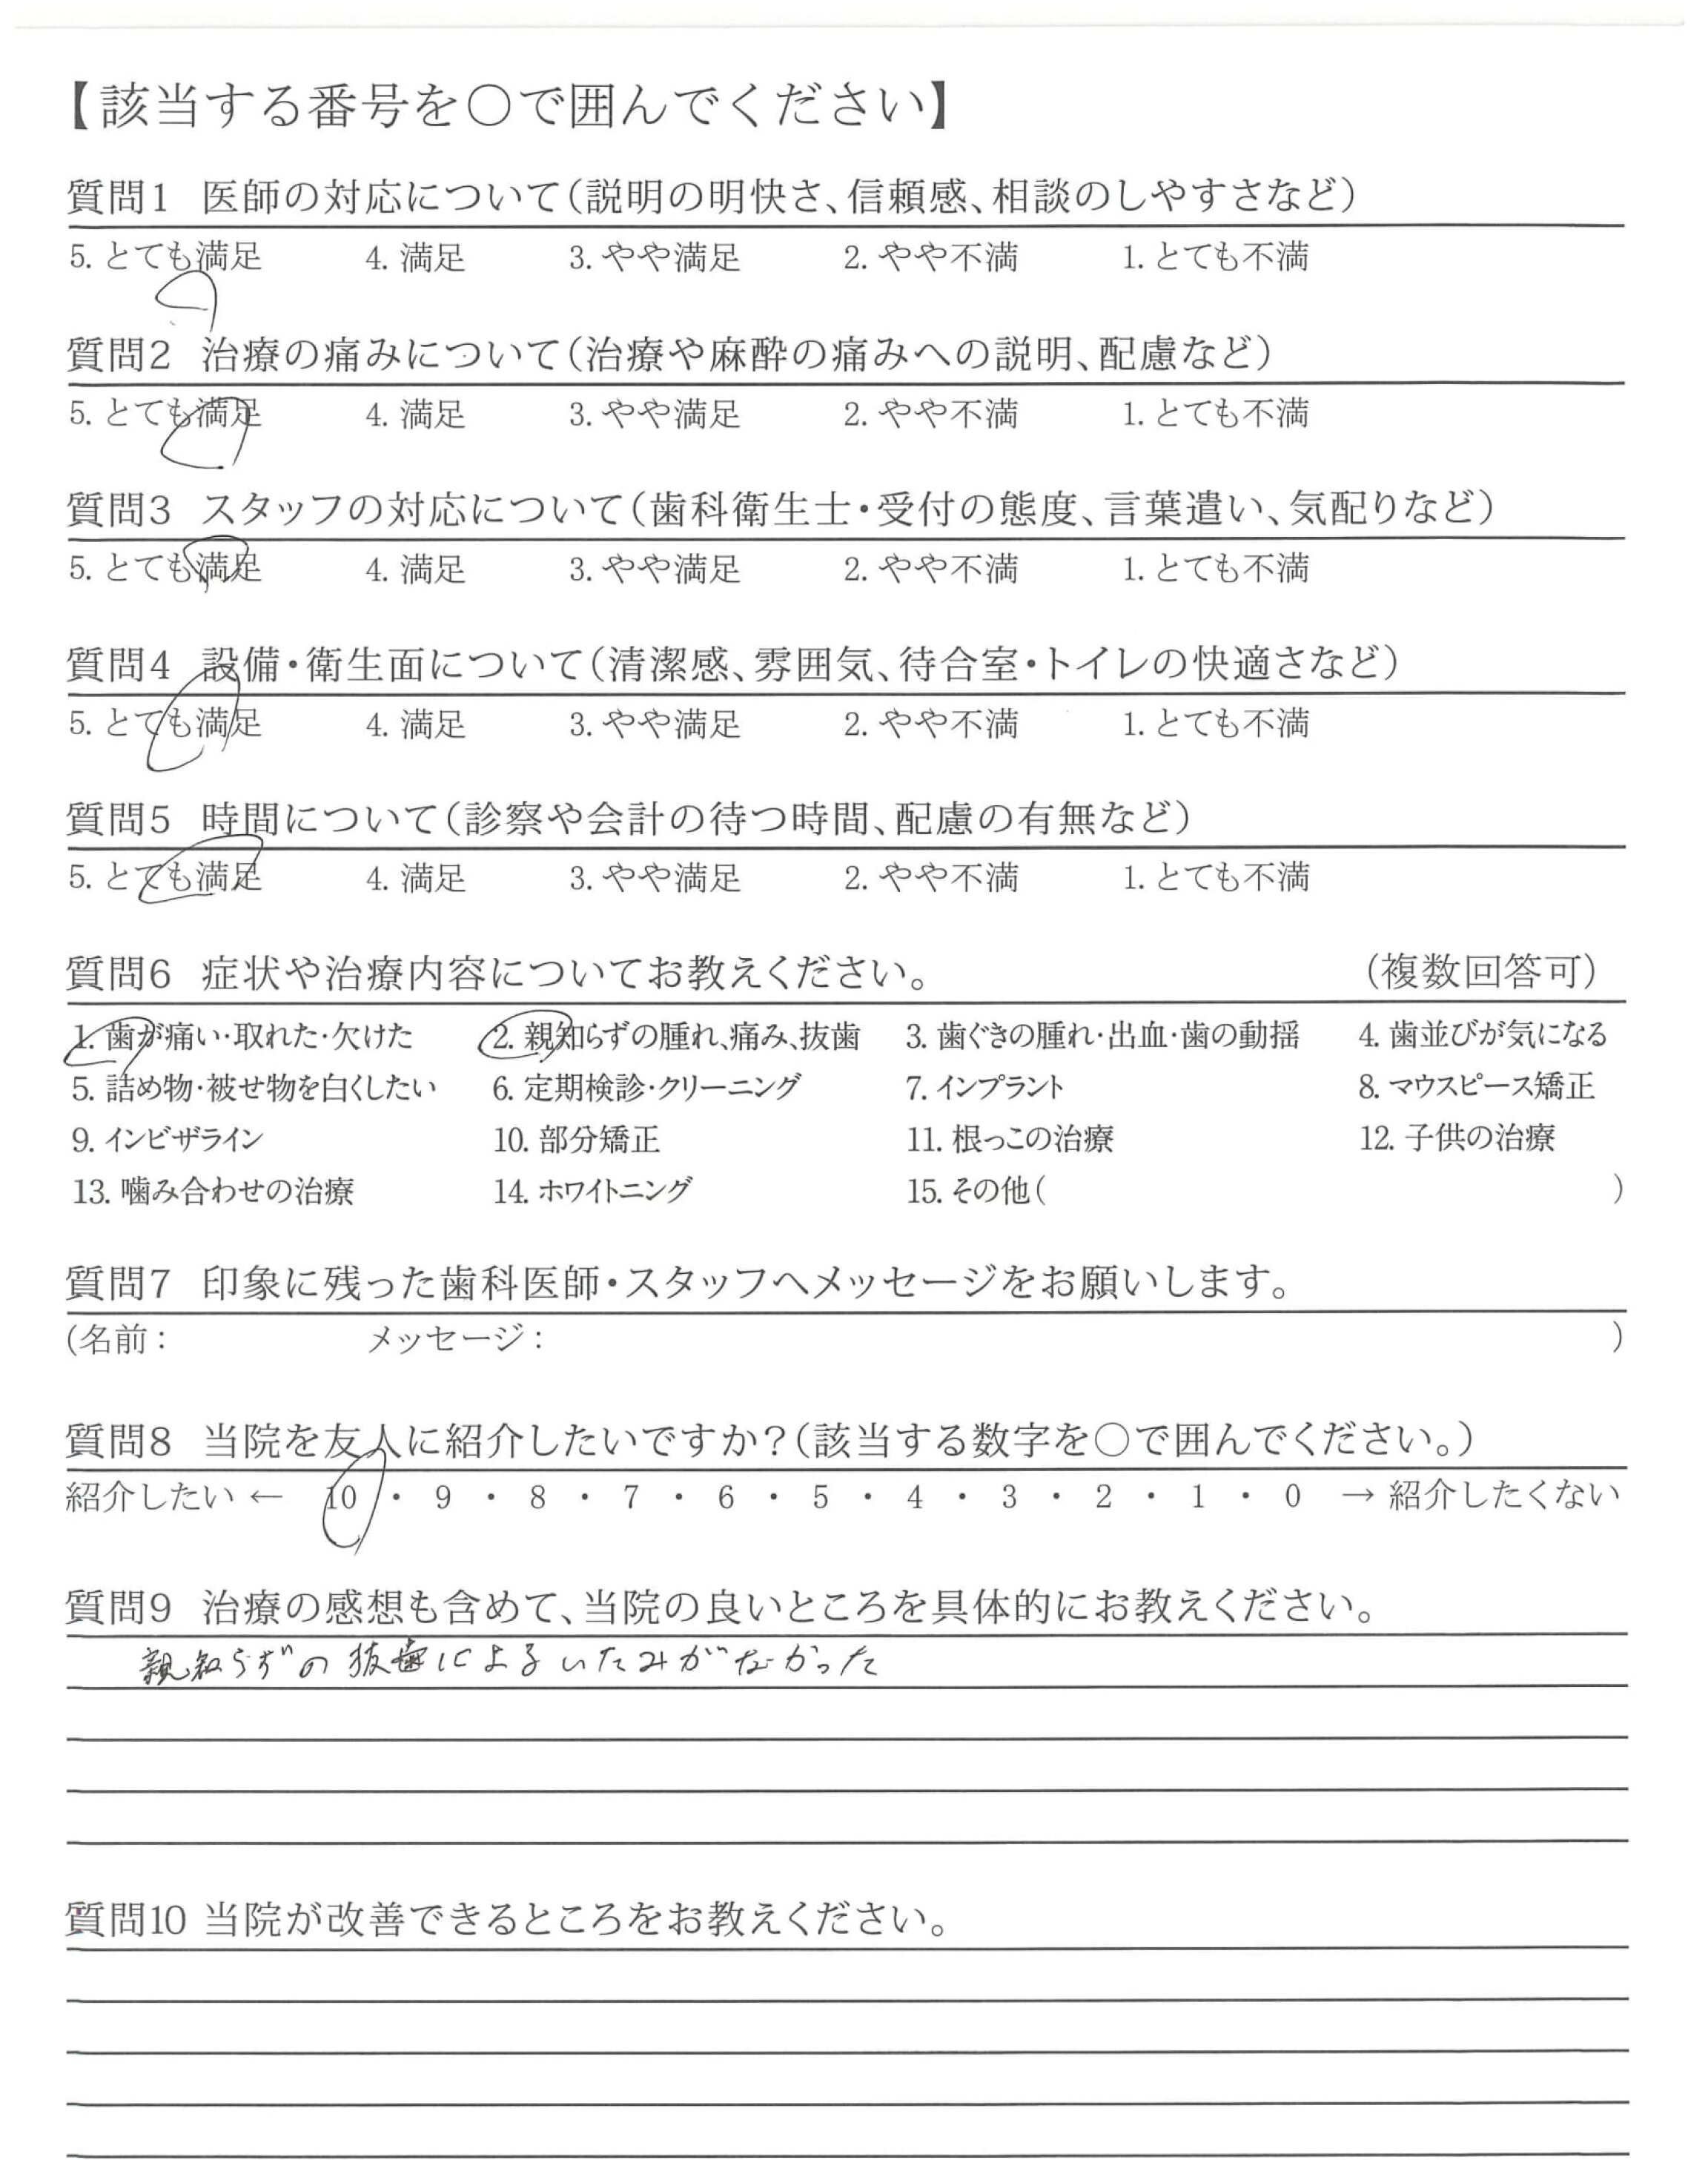 【該当する番号を○で囲んでください】
質問1 医師の対応について(説明の明快さ、信頼感、相談のしやすさなど)
5. とても満足 4. 満足 3. やや満足 2. やや不満 1. とても不満
質問2 治療の痛みについて(治療や麻酔の痛みへの説明、配慮など)
5. とても満足 4. 満足 3. やや満足 2. やや不満 1. とても不満
質問3 スタッフの対応について(歯科衛生士・受付の態度、言葉遣い、気配りなど)
5. とても満足 4. 満足 3. やや満足 2. やや不満 1. とても不満
質問4 設備・衛生面について(清潔感、雰囲気、待合室・トイレの快適さなど)
5. とても満足 4. 満足 3. やや満足 2. やや不満 1. とても不満
質問5 時間について(診察や会計の待つ時間、配慮の有無など)
5. とても満足 4. 満足 3. やや満足 2. やや不満 1. とても不満
質問6 症状や治療内容についてお教えください。 (複数回答可)
1. 歯が痛い・取れた・欠けた 2. 親知らずの腫れ、痛み、抜歯 3. 歯ぐきの腫れ・出血・歯の動揺 4. 歯並びが気になる
5. 詰め物・被せ物を白くしたい 6. 定期検診・クリーニング 7. インプラント 8. マウスピース矯正
9. インビザライン 10. 部分矯正 11. 根っこの治療 12. 子供の治療
13. 噛み合わせの治療 14. ホワイトニング 15. その他( )
質問7 印象に残った歯科医師・スタッフへメッセージをお願いします。
(名前: メッセージ: )
質問8 当院を友人に紹介したいですか?(該当する数字を○で囲んでください。)
紹介したい ← 10 ・ 9 ・ 8 ・ 7 ・ 6 ・ 5 ・ 4 ・ 3 ・ 2 ・ 1 ・ 0 → 紹介したくない
質問9 治療の感想も含めて、当院の良いところを具体的にお教えください。
親知らずの抜歯によるいたみがなかった
質問10 当院が改善できるところをお教えください。